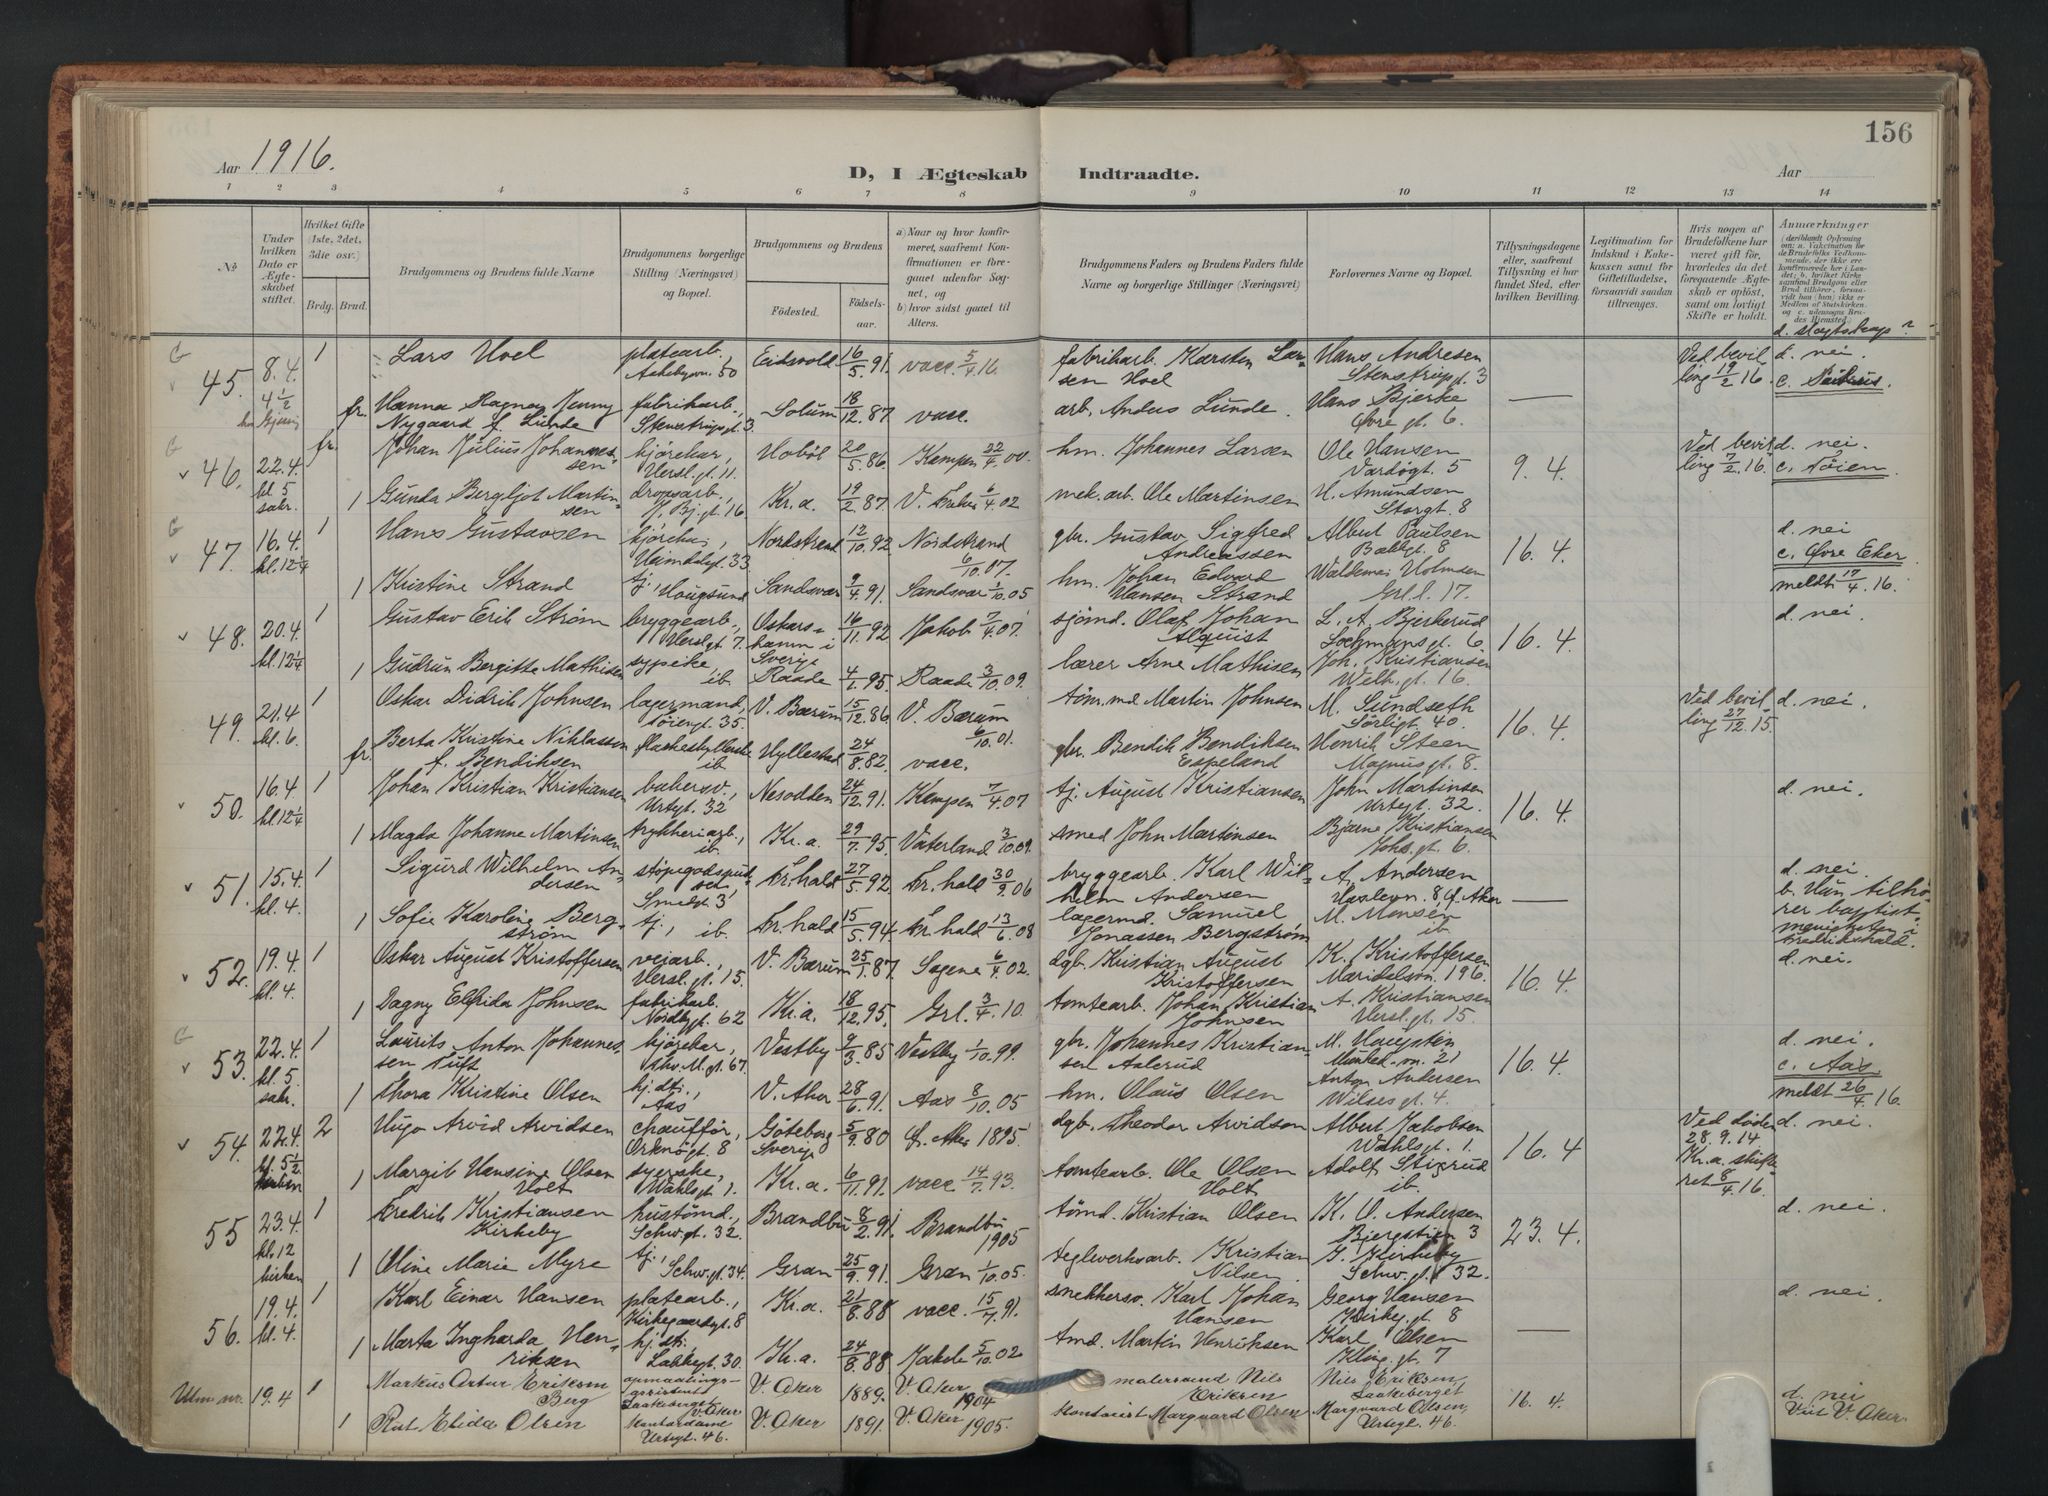 156
Aar 1916.
D, I Ægteskab Indtraadte.
Aar
1 2 3 4 5 6 7 8 9 10 11 12 13 14
No
Under hvilken Dato er Ægteskabet stiftet.
Hvilket Gifte (1ste, 2det, 3die osv.)
Brdg. Brud.
Brudgommens og Brudens fulde Navne.
Brudgommens borgerlige Stilling (Næringsvei) og Bopæl.
Brudgommens og Brudens
Födested. Födselsaar.
a) Naar og hvor konfirmeret, saafremt Konfirmationen er foregaaet udenfor Sognet, og
b) hvor sidst gaaet til Alters.
Brudgommens Faders og Brudens Faders fulde Navne og borgerlige Stillinger (Næringsvei)
Forlovernes Navne og Bopæl.
Tillysningsdagene eller, saafremt Tillysning ei har fundet Sted, efter hvilken Bevilling.
Legitimation for Indskud i Enkekassen samt for Giftetilladelse, forsaavidt saadan tiltrænges.
Hvis nogen af Brudefolkene har været gift før, hvorledes da det foregaaende Ægteskab er oplöst, samt om lovligt Skifte er holdt.
Anmærkninger
45. 8.4. 4 1/2 1 Lars Hvel platearb. 50 Eidsvold 16/5 91. vacc. 5/4 16. fabrikarb. Karsten Larsen Hvel Hans Andresen Stenstrupgt. 3 Ved bevilling 19/2 16. d. nei.
fr. Hanna Ragna Jenny Nygaard f. Lunde fabrikarb., Stenstrupgt. 3. Solum 18/12 87 vacc. arb. Anders Lunde. Hans Bjerke Øvre gt. 6.
46. 22.4. kl. 5 sakr. fr. Johan Julius Johannessen kjörekar, Herslgt. 11. Hobøl 20/5 86. Kampen 22/4 00. hm. Johannes Larsen Ole Hansen Vardögt. 5 9. 4. Ved bevilling 7/2 16. d. nei. c. Tøien
1 Gunda Bergljot Martinsen dropsarb., Kr.a. 19/2 87. 6/4 02 mek. arb. Ole Martinsen H. Amundsen Storgt. 8
47. 16.4. kl. 12 1/4 1 Hans Gustavsen kjörekar, Heimdalsgt. 33. Nordstrand 12/10 92 Nordstrand 6/10 07. gbr. Gustav Sigfred Andreassen Albert Paulsen Bakkgt. 8 16. 4. d. nei c. Øvre Eker
1 Kristine Strand tj., Hougsund Sandsvær 9/4 91. Sandsvær 1/10 05 hm. Johan Edvard Hansen Strand Waldemar Holmsen Grl. l. 17. meldt 17/4 16.
48. 20.4. kl. 12 1/4 1 Gustav Erik Strøm bryggearb., Herslgt 7. Oskarshamn i Sverige 16/11 92 Jakob 7/4 07. sjömd. Olaf Johan Alquist L. A. Bjerkerud Lochmannsgt. 6 16. 4. d. nei.
1 Gudrun Bergitte Mathisen sypike, ib. Raade 4/1 95. Raade 3/10 09. lærer Arne Mathisen Joh. Kristiansen Welh.gt. 16.
49. 21.4 kl. 6. 1 Oskar Didrik Johnsen lagermand, Töiengt. 35 V. Bærum 15/12 86 V. Bærum 6/10 01. töm.md Martin Johnsen M. Sundseth Sörligt. 40. 16. 4. Ved bevilling 27/12 15. d. nei.
fr. Berta Kristine Niklassen f. Bendiksen flaskeskyllerske ib Hyllestad 24/8 82. vacc. gbr. Bendik Bendiksen Espeland Henrik Steen Magnusgt. 8.
50. 16.4 kl. 12 1/4 1 Johan Kristian Kristiansen bakersv., Urtegt. 32 Nesodden 24/12 91. Kampen 7/4 07 tj. August Kristiansen John Martinsen Urtegt. 32. 16. 4. d. nei.
1 Magda Johanne Martinsen trykkeriarb., ib. Kr.a. 29/7 95. Vaterland 3/10 09. smed John Martinsen Bjarne Kristiansen Johs.gt. 6.
51. 15.4. kl. 4. 1 Sigurd Wilhelm Andersen støpegodspudser, Smedgt. 3 Fr.hald 27/5 92 Fr.hald 30/9 06 bryggearb. Karl Wilhelm Andersen A. Andersen Haslevn. 8, Ø. Aker d. nei. b. Hun tilhører baptistmenigheten i Fredrikshald.
1 Sofie Karoline Bergström tj., ib. Fr.hald 15/5 94 Fr.hald 13/6 08 lagermd. Samuel Jonassen Bergstrøm M. Monsen ib.
52. 19.4. kl. 4. 1 Oskar August Kristoffersen veiarb., Hersl.gt. 15. V. Bærum 25/1 87. Sagene 6/4 02. dgb. Kristian August Kristoffersen K. Kristoffersen Maridalsvn. 196. 16. 4. d. nei.
1 Dagny Elfrida Johnsen fabrikarb. Nordbygt. 62 Kr.a. 18/12 95. Grl. 3/4 10. tomtearb. Johan Kristian Johnsen A. Kristiansen Hersl.gt. 15.
53. 22.4. kl. 5. sakr. 1 Laurits Anton Johannessen Tuft kjörekar, Schw.M.gt. 67. Vestby 9/3 85 Vestby 1/10 99. gbr. Johannes Kristiansen Aalerud M. Haugstin Munked.vn. 21 16. 4. d. nei. c. Aas
1 Thora Kristine Olsen hj.dtr., Aas V. Aker 28/6 91. Aas 8/10 05 hm. Olaus Olsen Anton Andersen Wilsesgt. 4. meldt 26/4 16.
54. 22.4. kl. 5 1/2 kirken 2 Hugo Arvid Arvidsen chauffør, Orknögt. 8 Göteborg Sverige 5/9 80 Ø. Aker 1895 dgb. Theodor Arvidson Albert Jakobsen Wahlsgt. 1. 16. 4 Ved döden 28. 9. 14 Kr.a. skifteret 8/4 16. d. nei.
1 Margit Hansine Olsen Holt syerske, Wahlsgt. 1. Kr.a. 6/11 91. vacc 14/7 93. tomtearb. Ole Olsen Holt Adolf Stigerud ib.
55 23.4. kl. 12 kirken 1 Fredrik Kristiansen Kirkeby hustömd., Schw.gt. 32. Brandbu 8/2 91. Brandbu 1905 tömd. Kristian Olsen K. O. Andersen Bjergstien 3 23. 4. d. nei.
1 Oline Marie Myre tj., Schw.gt. 34. Gran 25/9 91. Gran 1/10 05. teglverksarb. Kristian Nilsen J. Kirkeby Schw.gt. 32.
56. 19.4. kl. 4. 1 Karl Einar Hansen platearb., Kirkegaardsgt. 8 Kr.a. 21/8 88 vacc. 15/7 91. snekkersv. Karl Johan Hansen Georg Hansen Kirkeg.gt. 8 d. nei.
1 Marta Ingharda Henriksen hj. dtr., Lakkegt. 30. Kr.a. 24/8 88 Jakob 5/10 02 tmd. Martin Henriksen Karl Olsen Kling.gt. 7
Uten nr. 19.4 1 Markus Artur Eriksen Berg opmaalingsassistent V. Aker V. Aker 1889. V. Aker 1904 malersvend Nils Eriksen Nils Eriksen, Laakeberget 16. 4. d. nei
1 Rut Elida Olsen kontordame Urtegt. 46. V. Aker 1891. V. Aker 1905. kontorist Margvard Olsen Margvard Olsen, Urtegt. 46. Viet V. Aker